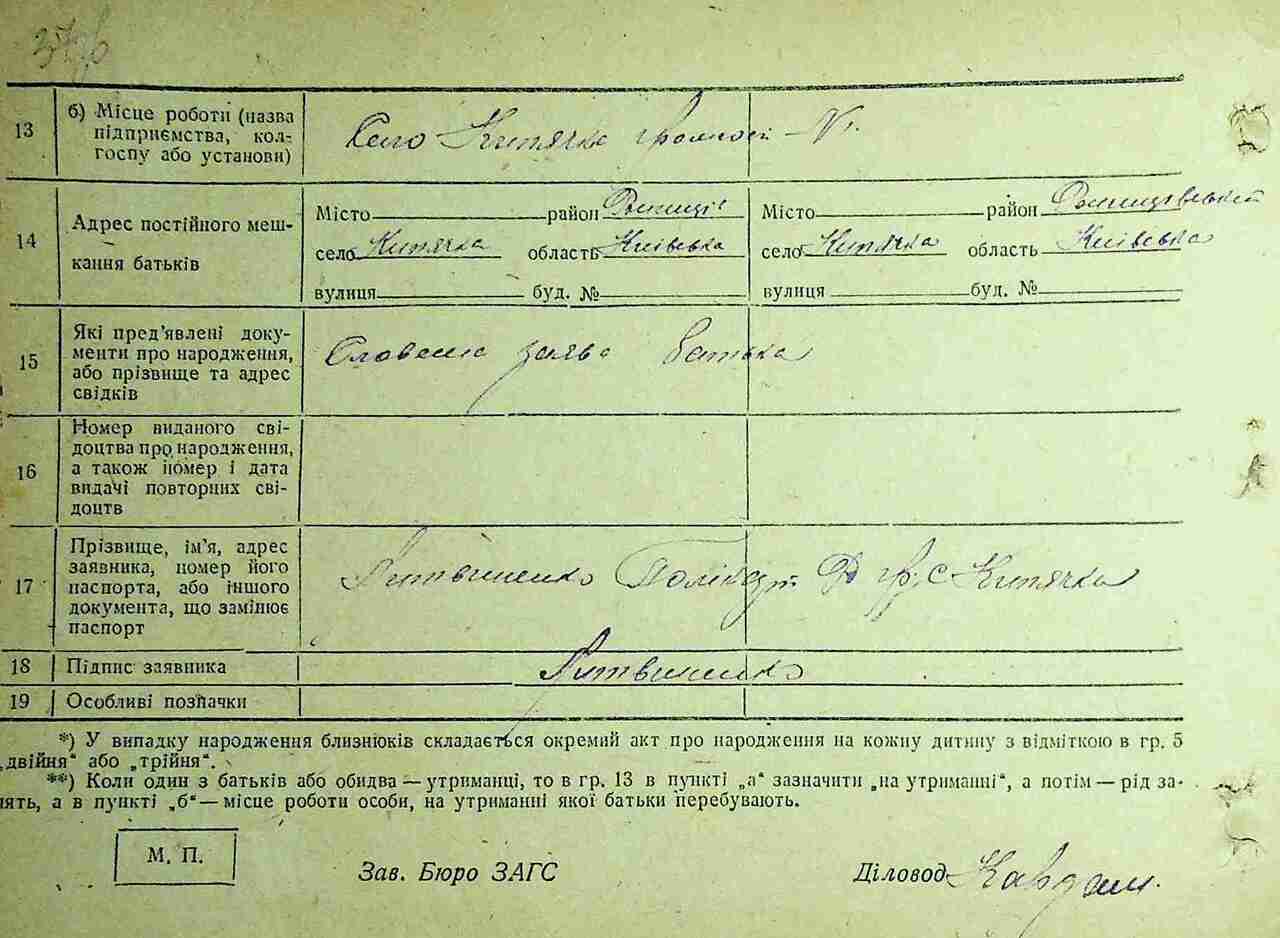 13 б) Місце роботи (назва
підприємства, кол-
госпу або установи)
Село Кипячка
14 Адрес постійного меш-
кання батьків
Місто район
село Кипячка область Київська
вулиця буд. №
Місто район
село Кипячка область Київська
вулиця буд. №
15 Які пред’явлені доку-
менти про народження,
або прізвище та адрес
свідків
Словесна заява батька
16 Номер виданого сві-
доцтва про народження,
а також номер і дата
видачі повторних сві-
доцтв
17 Прізвище, ім’я, адрес
заявника, номер його
паспорта, або іншого
документа, що замінює
паспорт
Литвиненко с Кипячка
18 Підпис заявника Литвиненко
19 Особливі позначки
*) У випадку народження близнюків складається окремий акт про народження на кожну дитину з відміткою в гр. 5
„двійня“ або „трійня“.
**) Коли один з батьків або обидва — утриманці, то в гр. 13 в пункті „а“ зазначити „на утриманні“, а потім — рід за-
нять, а в пункті „б“ — місце роботи особи, на утриманні якої батьки перебувають.
М. П.
Зав. Бюро ЗАГС
Діловод